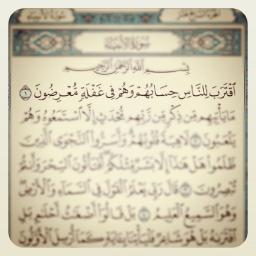 سورة الأنبياء
بسم الله الرحمن الرحيم
اقترب للناس حسابهم وهم في غفلة معرضون ١
ما يأتيهم من ذكر من ربهم محدث إلا استمعوه وهم
يلعبون ٢ لاهية قلوبهم وأسروا النجوى الذين
ظلموا هل هذا إلا بشر مثلكم أفتأتون السحر وأنتم
تبصرون ٣ قال ربي يعلم القول في السماء والأرض
وهو السميع العليم ٤ بل قالوا أضغاث أحلام بل
افتراه بل هو شاعر فليأتنا بآية كما أرسل الأولون